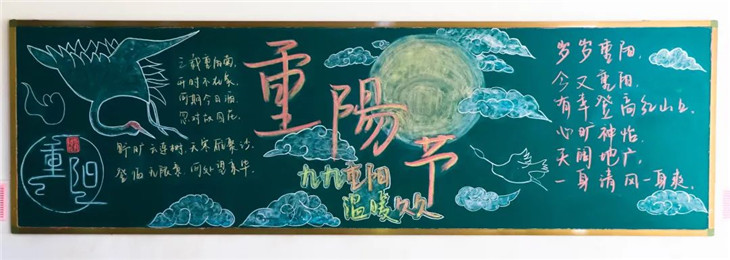 三载重阳菊,
开时不在家.
何期今日酒,
忽对故园花.
野旷云连树,天寒雁聚沙.
登临无限意,何处望京华.
重阳
重陽节
九九重阳
温暖久久
岁岁重阳,
今又重阳.
有幸登高红山上.
心旷神怡.
天阔地广,
一身清风一身爽.